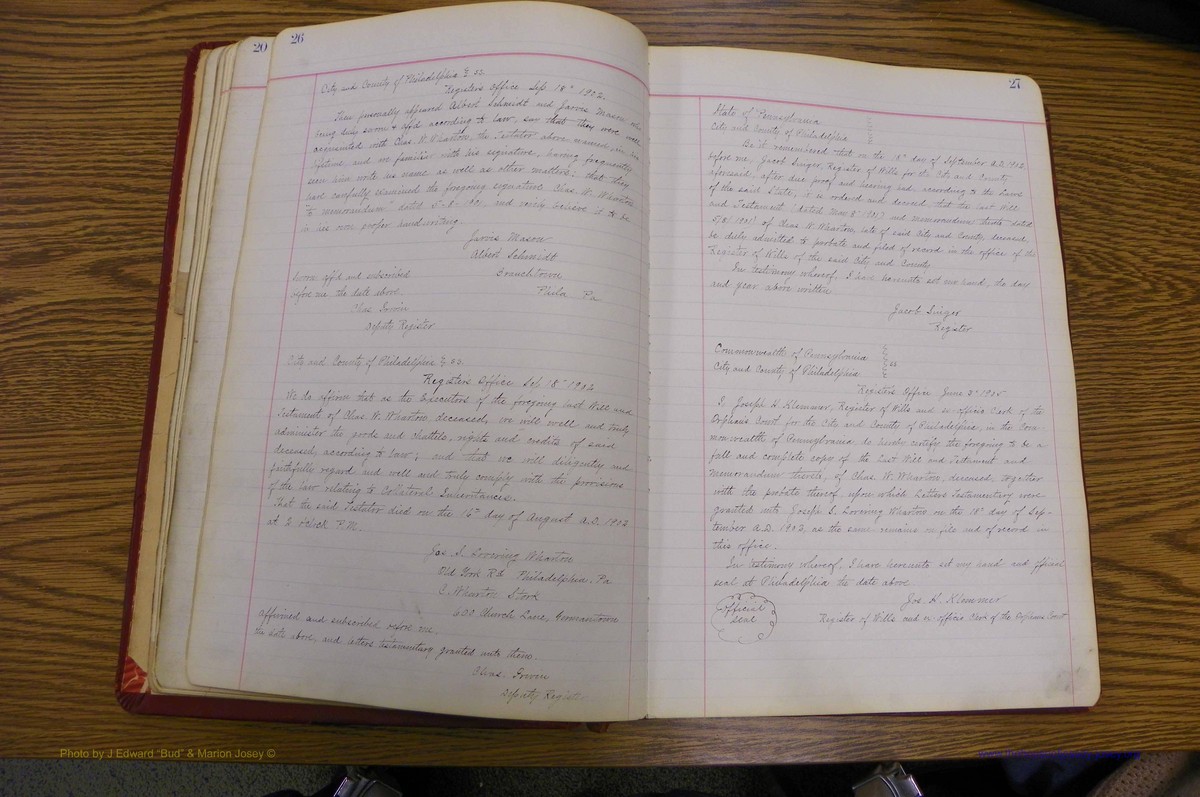 20
26
City and County of Philadelphia } ss.
Registers Office Sep 18" 1902.
Then personally appeared Albert Schmidt and Jarvis Mason who
being duly sworn & affd according to law, say that they were well
acquainted with Chas. W. Wharton, the Testator above named, in his
lifetime and are familiar with his signature, having frequently
seen him write his name as well as other matters; that they
have carefully examined the foregoing signature Chas. W. Wharton
to "memorandum" dated 5-8-1901, and verily believe it to be
in his own proper hand-writing.
Jarvis Mason
Albert Schmidt
Branchtown
Phila Pa
Sworn affd and subscribed
before me the date above
Chas Irwin
Deputy Register
City and County of Philadelphia } ss.
Registers Office Sep 18" 1902
We do affirm that as the Executors of the foregoing last Will and
Testament of Chas. W. Wharton, deceased, we will well and truly
administer the goods and chattels, rights and credits of said
deceased, according to law; and that we will diligently and
faithfully regard and well and truly comply with the provisions
of the law relating to Collateral Inheritances.
That the said Testator died on the 16th day of August A.D. 1902
at 2 o'clock P.M.
Jos S. Lovering Wharton
Old York Rd Philadelphia, Pa
C. Wharton Stork
600 Church Lane, Germantown
affirmed and subscribed before me
the date above, and letters testamentary granted unto them
Chas. Irwin
Deputy Register
27
State of Pennsylvania
City and County of Philadelphia
Be it remembered that on the 18th day of September A.D. 1902,
before me, Jacob Singer, Register of Wills for the City and County
aforesaid, after due proof and hearing had, according to the Laws
of the said State, it is ordered and decreed, that the last Will
and Testament (dated May 8" 1901) and memorandum thereto dated
5/8/1901) of Chas. W. Wharton, late of said City and County, deceased,
be duly admitted to probate and filed of record in the office of the
Register of Wills of the said City and County
In testimony whereof, I have hereunto set my hand, the day
and year above written
Jacob Singer
Register
Commonwealth of Pennsylvania
City and County of Philadelphia } ss
Registers Office June 3d
I, Joseph H. Klemmer, Register of Wills and ex-officio Clerk of the
Orphans Court for the City and County of Philadelphia, in the Com-
monwealth of Pennsylvania do hereby certify the foregoing to be a
full and complete copy of the Last Will and Testament and
Memorandum thereto, of Chas. W. Wharton, deceased, together
with the probate thereof upon which Letters Testamentary were
granted unto Joseph S. Lovering Wharton on the 18th day of Sep-
tember A.D. 1902, as the same remains on file and of record in
this office.
In testimony whereof, I have hereunto set my hand and official
seal at Philadelphia the date above
Jos. H. Klemmer
Register of Wills and ex-officio Clerk of the Orphans Court
Official
Seal
Photo by J Edward "Bud" & Marion Josey ©